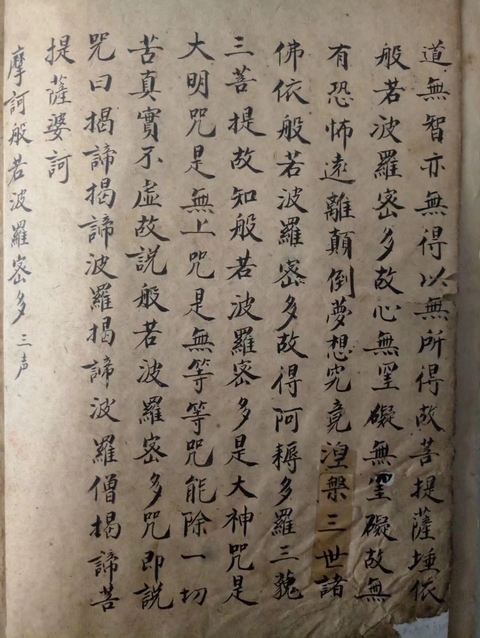 道無智亦無得以無所得故菩提薩埵依
般若波羅密多故心無罣礙無罣礙故無
有恐怖遠離顛倒夢想究竟涅槃三世諸
佛依般若波羅密多故得阿耨多羅三藐
三菩提故知般若波羅密多是大神咒是
大明咒是無上咒是無等等咒能除一切
苦真實不虛故說般若波羅密多咒即說
咒曰揭諦揭諦波羅揭諦波羅僧揭諦菩
提薩婆訶
摩訶般若波羅密多三声